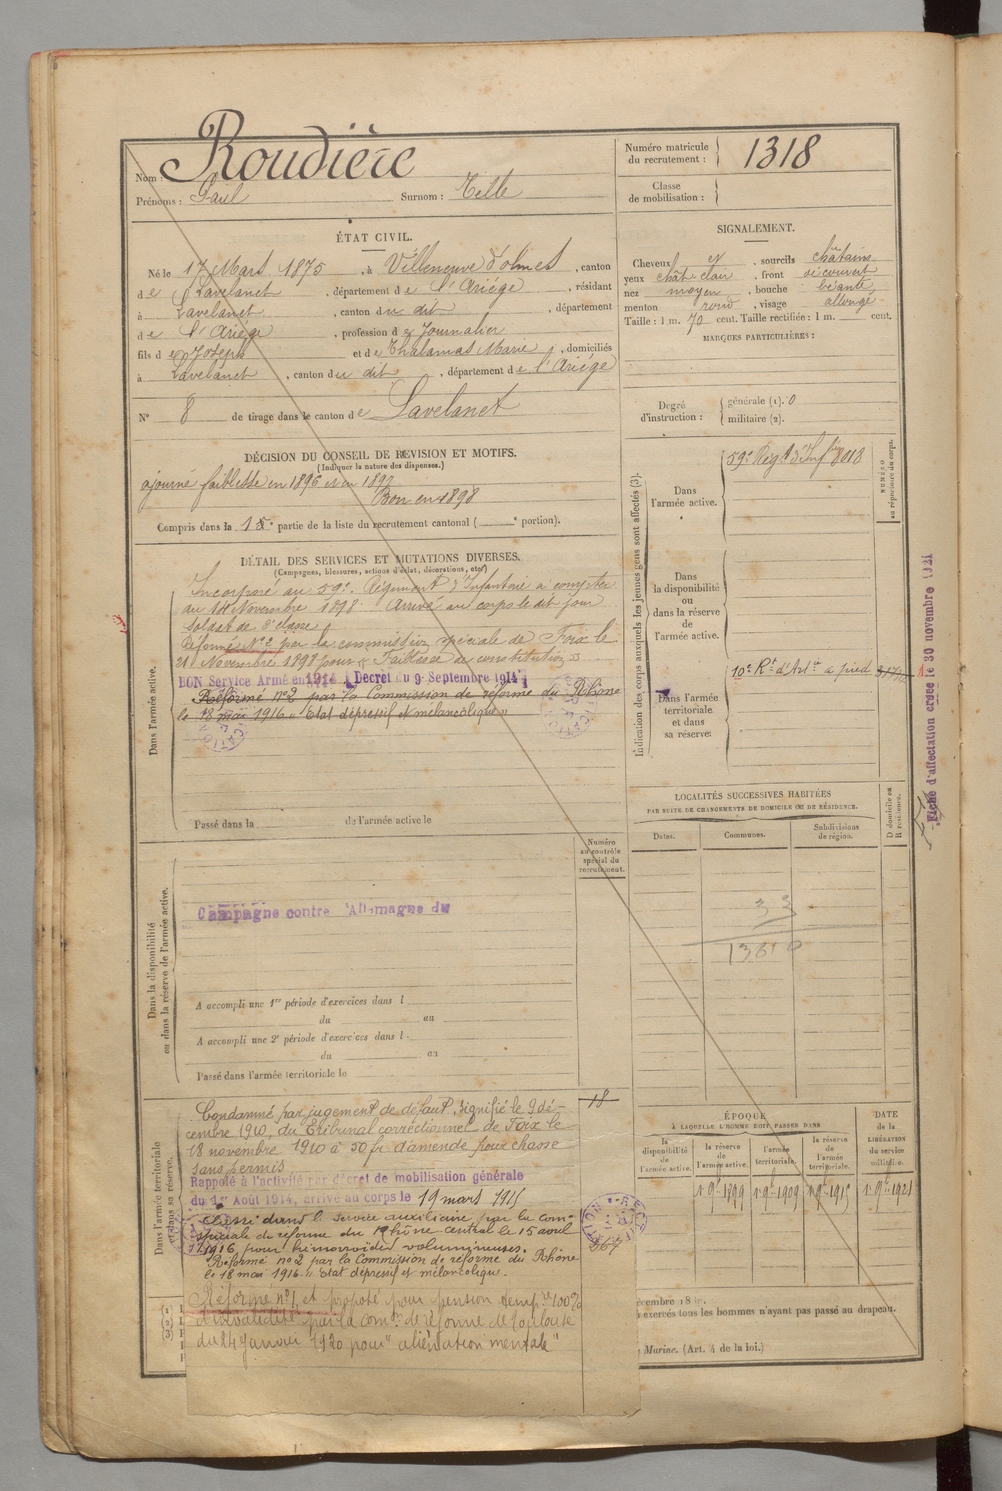 Nom : Roudière
Prénoms : Paul Surnom : Telle
Numéro matricule du recrutement : 1318
Classe de mobilisation :
ÉTAT CIVIL.
Né le 17 Mars 1875, à Villeneuve d'olmes, canton
de Lavelanet, département de l'Ariége, résidant
à Lavelanet, canton du dit, département
de l'Ariége, profession de Journalier
fils de Joseph et de Thalamas Marie, domiciliés
à Lavelanet, canton du dit, département de l'Ariége
N° 8 de tirage dans le canton de Lavelanet
SIGNALEMENT.
Cheveux et, sourcils châtains
yeux chât clair, front découvert
nez moyen, bouche béante
menton rond, visage allongé
Taille : 1 m. 70 cent. Taille rectifiée : 1 m. cent.
MARQUES PARTICULIÈRES :
Degré d'instruction : générale (1). 0
militaire (2).
DÉCISION DU CONSEIL DE REVISION ET MOTIFS.
(Indiquer la nature des dispenses.)
ajourné faiblesse en 1896 et en 1897
Bon en 1898
Compris dans la 1e partie de la liste du recrutement cantonal ( e portion).
DÉTAIL DES SERVICES ET MUTATIONS DIVERSES.
(Campagnes, blessures, actions d'éclat, décorations, etc.)
Dans l'armée active.
Incorporé au 59e Régiment d'Infanterie à compter
du 14 Novembre 1898. Arrivé au corps le dit jour
soldat de 2e classe
Réformé N°2 par la commission spéciale de Foix le
21 Novembre 1898 pour « Faiblesse de constitution »
BON Service Armé en 1914 Décret du 9 Septembre 1914
Réformé n°2 par la Commission de réforme du Rhône
le 18 mai 1916 « Etat dépressif et mélancolique »
Passé dans la de l'armée active le
Indication des corps auxquels les jeunes gens sont affectés (3).
Dans l'armée active.
59e Régt d'Infrie 8013
NUMÉRO au répertoire du corps.
Dans la disponibilité ou dans la réserve de l'armée active.
Dans l'armée territoriale et dans sa réserve.
10e Rt d'Artie à pied
Fiche d'affectation créée le 30 novembre 1921
LOCALITÉS SUCCESSIVES HABITÉES
PAR SUITE DE CHANGEMENTS DE DOMICILE OU DE RÉSIDENCE.
Dates.
Communes.
Subdivisions de région.
D domicile ou R résidence.
33
Dans la disponibilité ou dans la réserve de l'armée active.
Numéro au contrôle spécial du recrutement.
Campagne contre l'Allemagne du
A accompli une 1re période d'exercices dans l
du au
A accompli une 2e période d'exercices dans l
du au
Passé dans l'armée territoriale le
Dans l'armée territoriale et dans sa réserve.
18
Condamné par jugement de défaut, signifié le 9 dé-
cembre 1910, du Tribunal correctionnel de Foix le
18 novembre 1910 à 50 fr d'amende pour chasse
sans permis
Rappelé à l'activité par décret de mobilisation générale
du 1er Août 1914, arrivé au corps le 19 mars 1915
Classé dans le service auxiliaire par la Com-
spéciale de réforme du Rhône central le 15 avril
1916 pour hémorroïdes volumineuses.
Réformé n°2 par la Commission de réforme du Rhône
le 18 mai 1916. « Etat dépressif et mélancolique.
Réformé n°1, et proposé pour pension tempre 100%
d'invalidité par la comon de réforme de Toulouse
du 24 Janvier 1920 pour "aliénation mentale"
ÉPOQUE
À LAQUELLE L'HOMME DOIT PASSER DANS
la disponibilité de l'armée active.
la réserve de l'armée active.
l'armée territoriale.
la réserve de l'armée territoriale.
DATE de la LIBÉRATION du service militaire.
1er 9bre 1899
1er 9bre 1909
1er 9bre 1915
1er 9bre 1921
exercés tous les hommes n'ayant pas passé au drapeau.
Marine. (Art. 4 de la loi.)